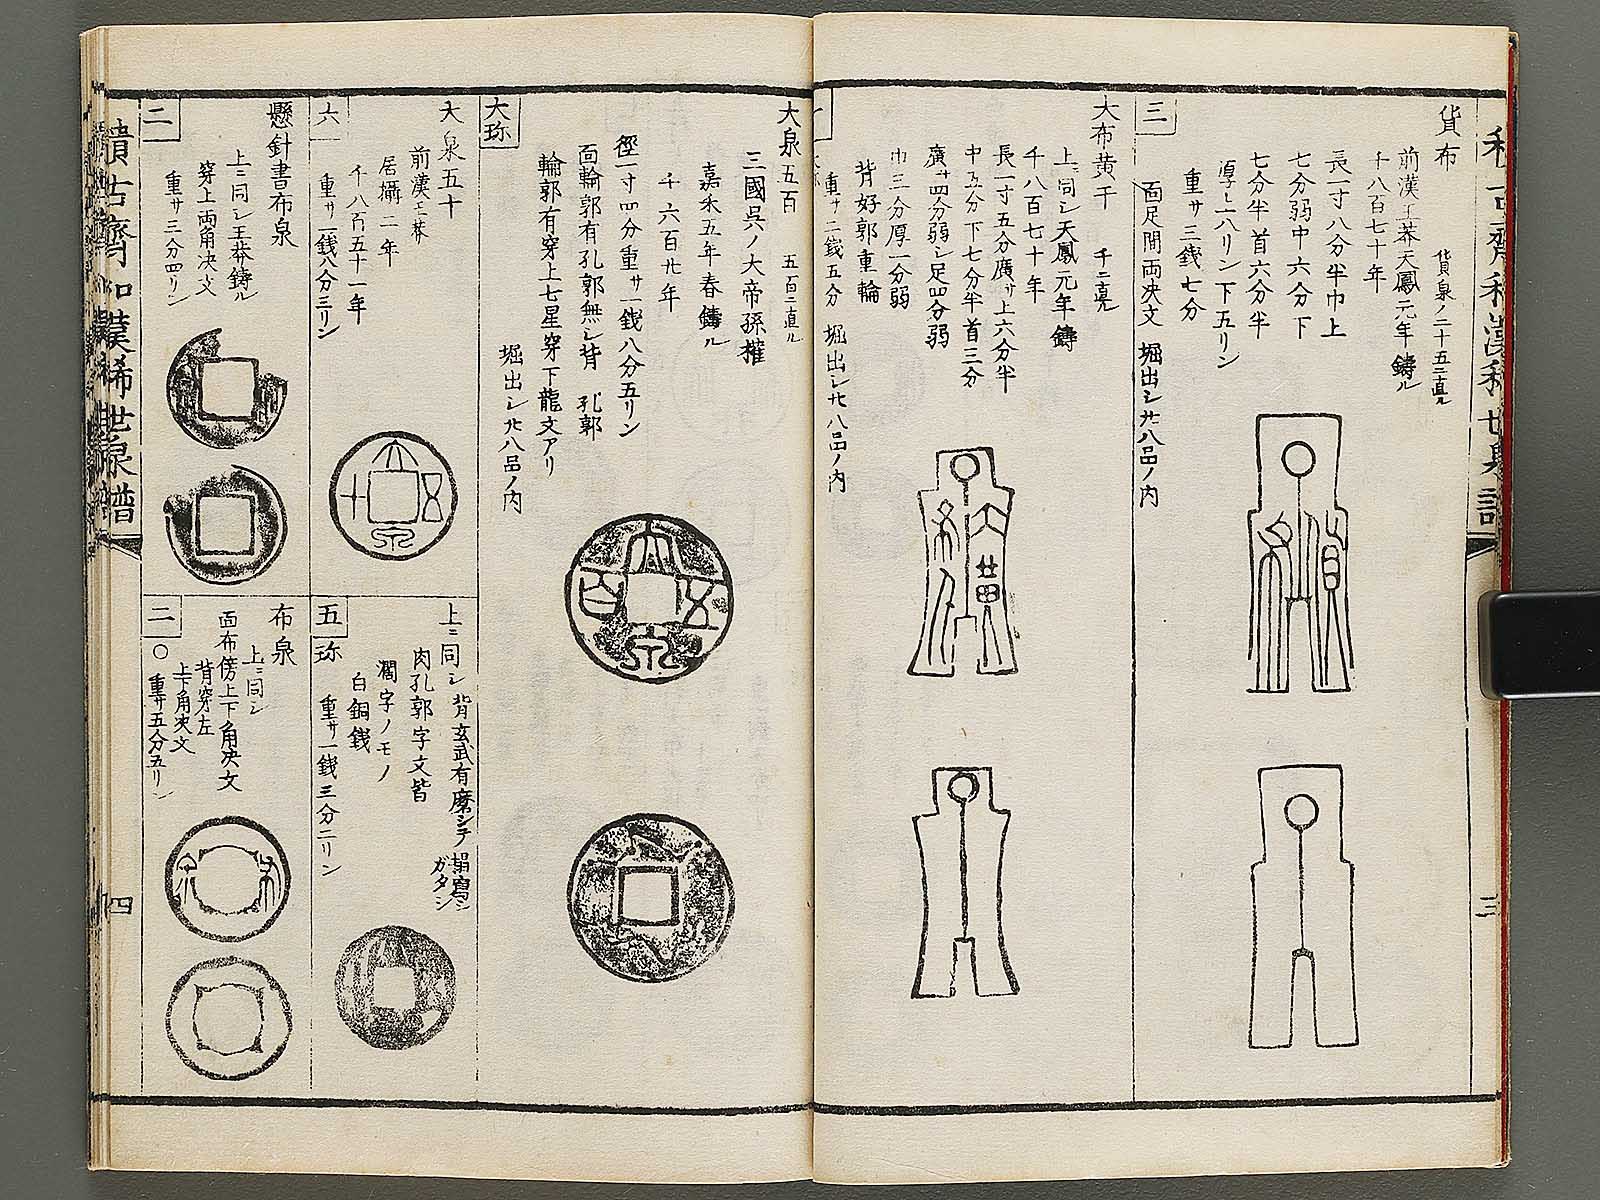 貨布 貨泉ノ二十五ニ直ル
前漢王莽天鳳元年鋳ル
千八百七十年
長一寸八分半巾上
七分弱中六分下
七分半首六分半
厚上八リン下五リン
重サ三銭七分
面足間両決文 堀出シ廿八品ノ内
三
大布黄千 千ニ直ル
上ニ同シ天鳳元年鋳
千八百七十年
長一寸五分廣サ上六分半
中五分下七分半首三分
廣サ四分弱シ足四分弱
巾三分厚一分弱
背好郭重輪
重サ二銭五分 堀出シ廿八品ノ内
大泉五百 五百ニ直ル
三國呉ノ大帝孫権
嘉禾五年春鋳ル
千六百廿年
徑一寸四分重サ一銭八分五リン
面輪郭有孔郭無シ背孔郭
輪郭有穿上七星穿下龍文アリ
堀出シ廿八品ノ内
大珎
大泉五十
前漢王莽
居攝二年
千八百五十一年
重サ一銭八分三リン
六
上ニ同シ 背玄武有磨シテ搨寫シガタシ
肉孔郭字文皆
濶字ノモノ
白銅銭
重サ一銭三分二リン
五珎
懸針書布泉
上ニ同シ王莽鋳ル
穿上両角决文
重サ三分四リン
二
布泉
上ニ同シ
面布傍上下角决文
背穿左
上下角决文
重サ五分五リン
二〇
積古齋和漢稀世泉譜
四
三